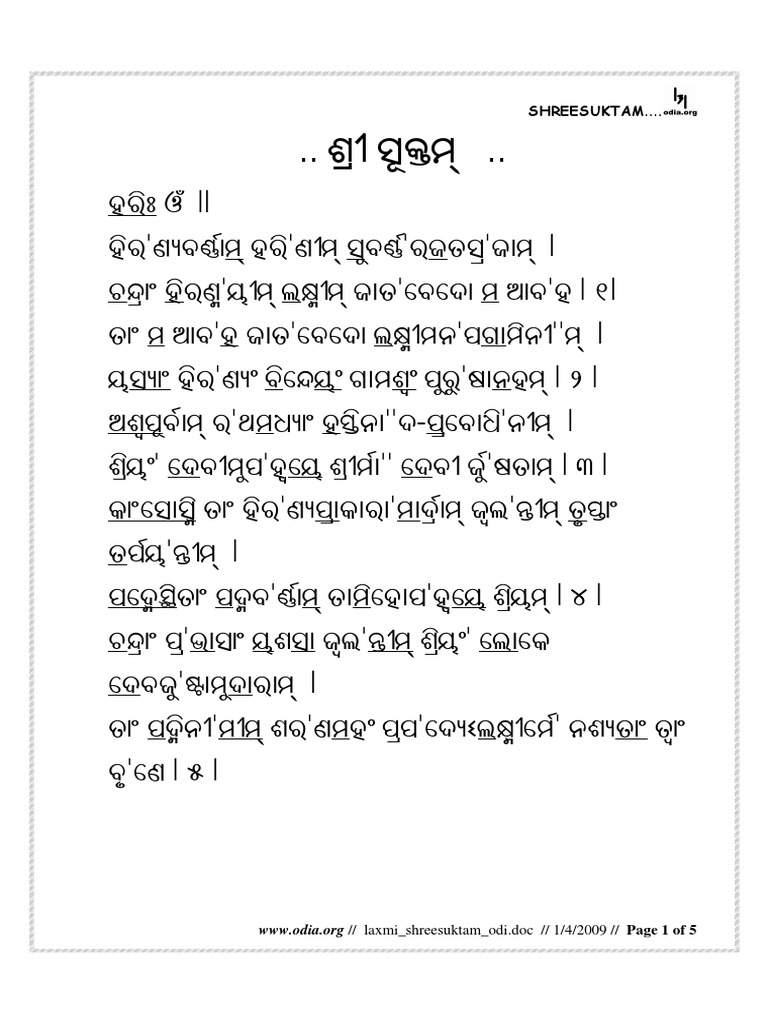 SHREESUKTAM.... odia.org
.. ଶ୍ରୀ ସୂକ୍ତମ୍ ..
ହରିଃ ଓଁ ||
ହିର'ଣ୍ୟବର୍ଣ୍ଣାମ୍ ହରି'ଣୀମ୍ ସୁବର୍ଣ୍ଣ'ରଜତସ୍ର'ଜାମ୍ |
ଚନ୍ଦ୍ରାଂ ହିରଣ୍ମ'ୟୀମ୍ ଲକ୍ଷ୍ମୀମ୍ ଜାତ'ବେଦୋ ମ ଆବ'ହ | ୧|
ତାଂ ମ ଆବ'ହ ଜାତ'ବେଦୋ ଲକ୍ଷ୍ମୀମନ'ପଗାମିନୀ''ମ୍ |
ୟସ୍ୟାଂ ହିର'ଣ୍ୟଂ ବିନ୍ଦେୟଂ ଗାମଶ୍ୱଂ ପୁରୁ'ଷାନହମ୍ | ୨ |
ଅଶ୍ୱପୂର୍ବାମ୍ ର'ଥମଧ୍ୟାଂ ହସ୍ତିନା''ଦ-ପ୍ରବୋଧି'ନୀମ୍ |
ଶ୍ରିୟଂ' ଦେବୀମୁପ'ହ୍ୱୟେ ଶ୍ରୀର୍ମା'' ଦେବୀ ର୍ଜୁ'ଷତାମ୍ | ୩ |
କାଂସୋସ୍ମି ତାଂ ହିର'ଣ୍ୟପ୍ରାକାରା'ମାର୍ଦ୍ରାମ୍ ଜ୍ୱଲ'ନ୍ତୀମ୍ ତୃପ୍ତାଂ
ତର୍ପୟ'ନ୍ତୀମ୍ |
ପଦ୍ମେସ୍ଥିତାଂ ପଦ୍ମବ'ର୍ଣ୍ଣାମ୍ ତାମିହୋପ'ହ୍ୱୟେ ଶ୍ରିୟମ୍ | ୪ |
ଚନ୍ଦ୍ରାଂ ପ୍ର'ଭାସାଂ ୟଶସା ଜ୍ୱଲ'ନ୍ତୀମ୍ ଶ୍ରିୟଂ' ଲୋକେ
ଦେବଜୁ'ଷ୍ଟାମୁଦାରାମ୍ |
ତାଂ ପଦ୍ମିନୀ'ମୀମ୍ ଶର'ଣମହଂ ପ୍ରପ'ଦ୍ୟେଽଲକ୍ଷ୍ମୀର୍ମେ' ନଶ୍ୟତାଂ ତ୍ୱାଂ
ବୃ'ଣେ | ୫ |
www.odia.org // laxmi_shreesuktam_odi.doc // 1/4/2009 // Page 1 of 5